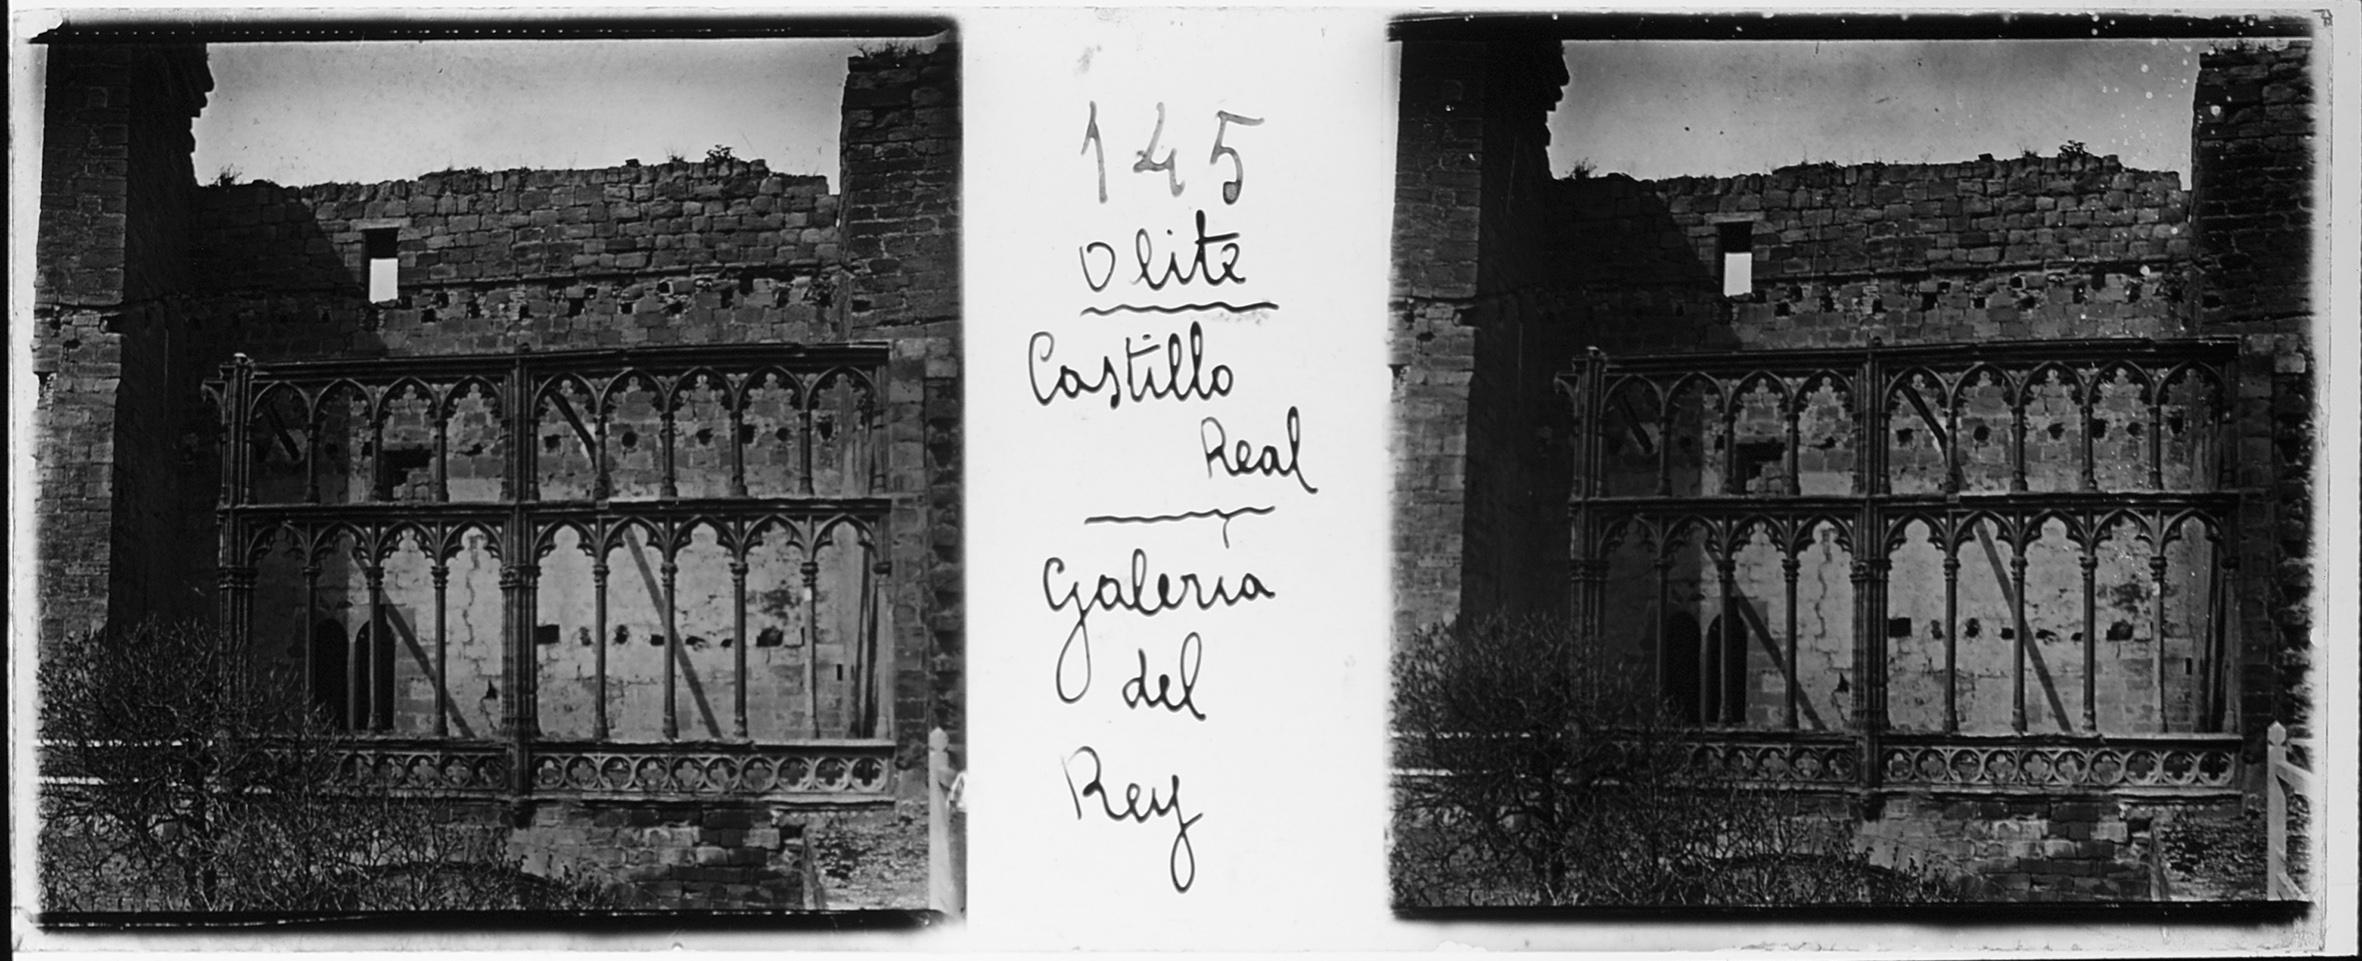 145
Olite
Castillo
Real
Galeria
del
Rey